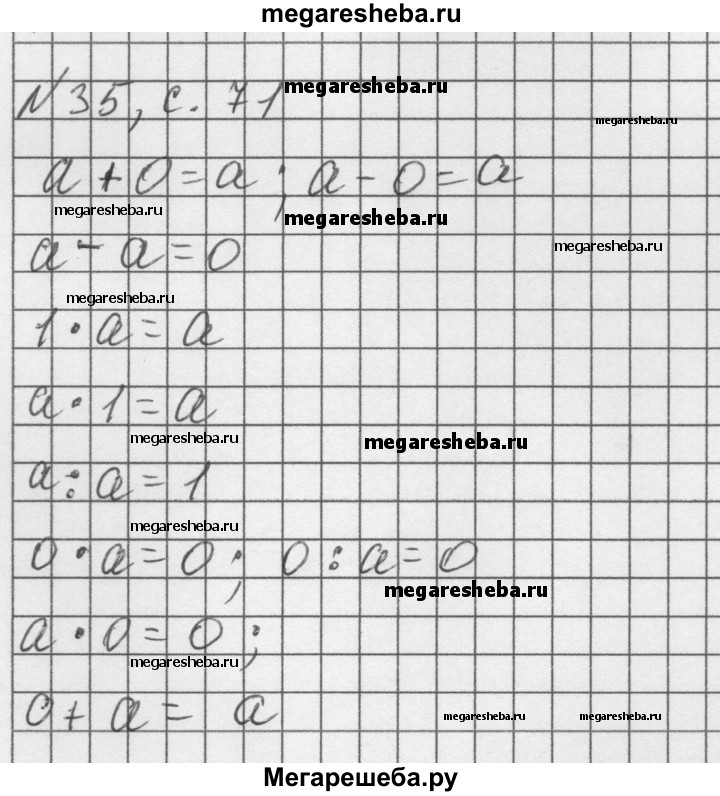 megaresheba.ru
№35, с. 71
megaresheba.ru
megaresheba.ru
a + 0 = a ; a - 0 = a
megaresheba.ru
megaresheba.ru
a - a = 0
megaresheba.ru
megaresheba.ru
1 · a = a
a · 1 = a
megaresheba.ru
megaresheba.ru
a : a = 1
megaresheba.ru
0 · a = 0 ; 0 : a = 0
megaresheba.ru
a · 0 = 0 ;
megaresheba.ru
0 + a = a
megaresheba.ru
megaresheba.ru
Мегарешеба.ру